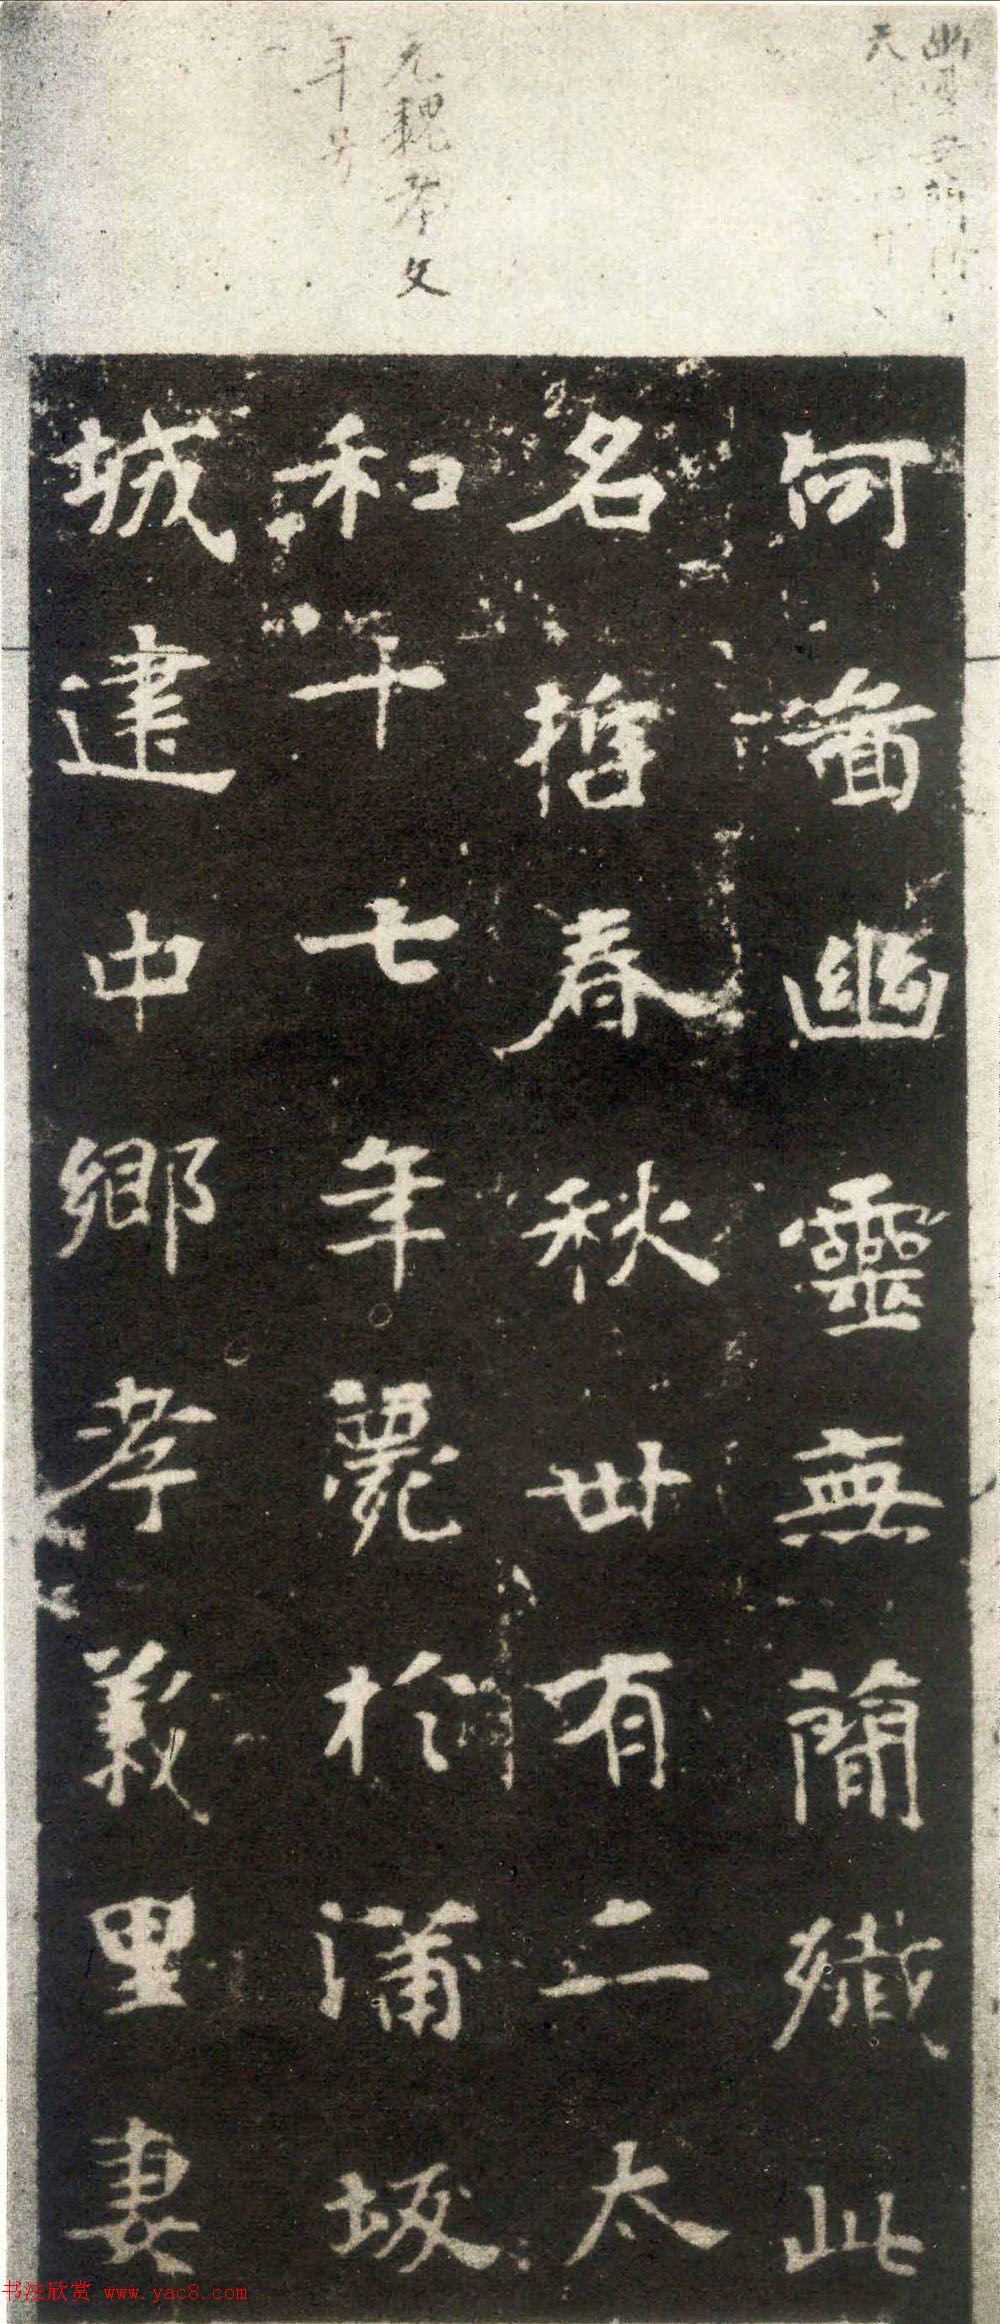 元魏孝文
年号
何啚幽靈無簡殲此
名哲春秋卌有二太
和十七年薨於蒲坂
城建中鄉孝義里妻
书法欣赏 www.yac8.com